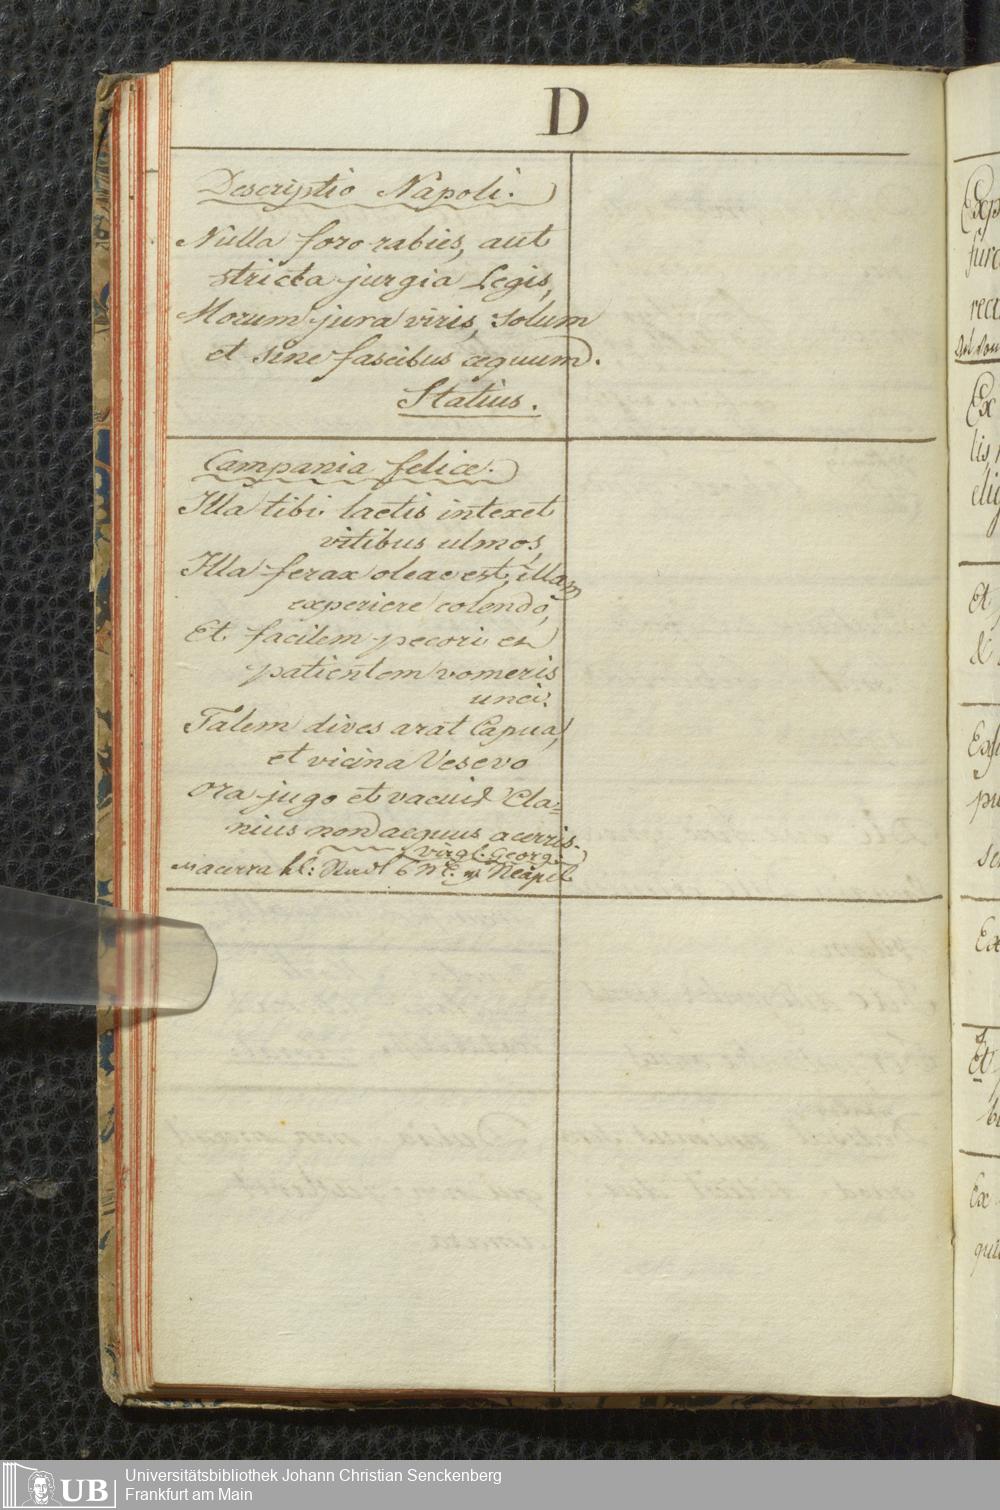 D
Descriptio Napoli.
Nulla foro rabies, aut
stricta jurgia Legis,
Morum jura viris, solum
et sine fascibus æquum.
Statius.
Campania felice.
Illa tibi laetis intexet
vitibus ulmos,
Illa ferax oleae est, illam
experiere colendo,
Et facilem pecori et
patientem vomeris
unci.
Talem dives arat Capua,
et vicina Vesevo
Ora jugo et vacuis Cla-
nius non aequus acerris.
virgl. Georg.
acerra kl: Stadt 6 Neapel
Exp
furo
rec
Ex
lis
elig
Et
&
Ex
pu
se
Ex
Et
Ex
qui
UB
Universitätsbibliothek Johann Christian Senckenberg
Frankfurt am Main